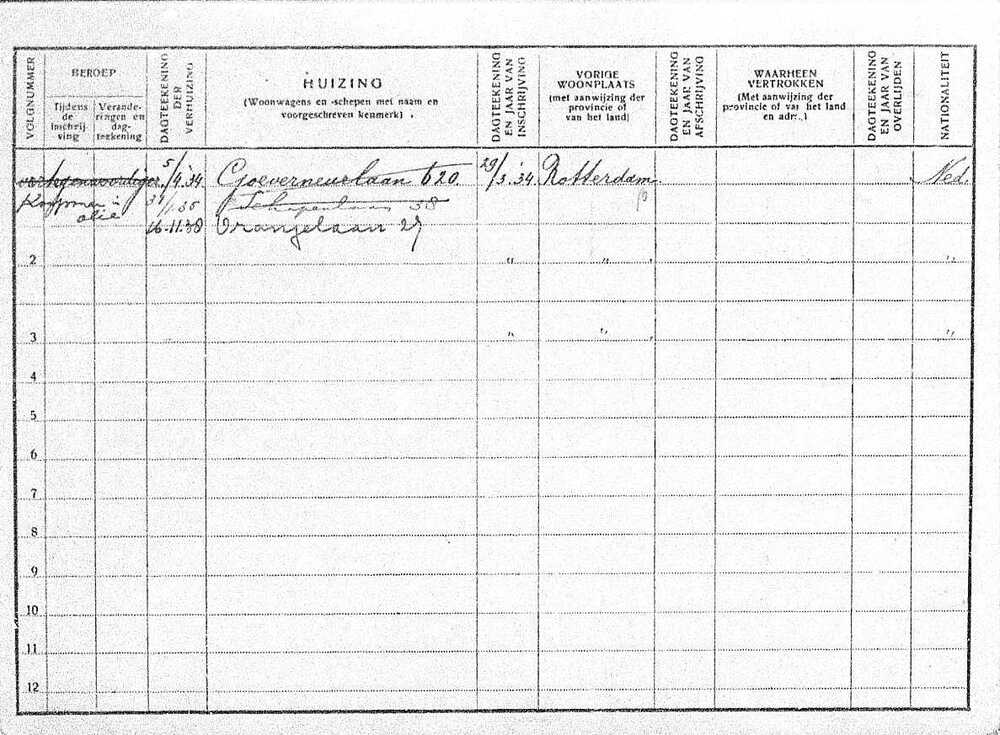 VOLGNUMMER
BEROEP
Tijdens de inschrijving
Veranderingen en dagteekening
DAGTEEKENING DER VERHUIZING
HUIZING
(Woonwagens en -schepen met naam en
voorgeschreven kenmerk)
DAGTEEKENING EN JAAR VAN INSCHRIJVING
VORIGE
WOONPLAATS
(met aanwijzing der
provincie of
van het land)
DAGTEEKENING EN JAAR VAN AFSCHRIJVING
WAARHEEN
VERTROKKEN
(Met aanwijzing der
provincie of van het land
en adres)
DAGTEEKENING EN JAAR VAN OVERLIJDEN
NATIONALITEIT
vertegenwoordiger 5/4 '34 Goeverneurlaan 620 29/3.34 Rotterdam Ned.
Koopman in
olie
Schapenlaan 38
16.11.38 Oranjelaan 29
2 " " "
3 " " "
4
5
6
7
8
9
10
11
12